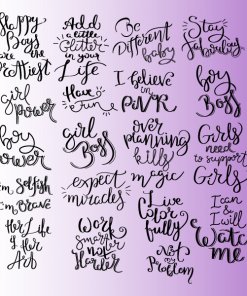 Happy
Days
are
Prettiest
Add
a little
Glitter
in your
Life
Be
Different
baby
Stay
girl
power
Have
fun
I believe
in
PINK
boy
Boss
boy
power
girl
Boss
over
planning
kills
magic
Girls
need
to support
Girls
I'm Selfish
I'm BRAVE
expect
miracles
Live
Color
fully
I can
& I will
Watch
me
Her Life
& Her
Art
Work
Smarter
not
Harder
Not
my
Problem